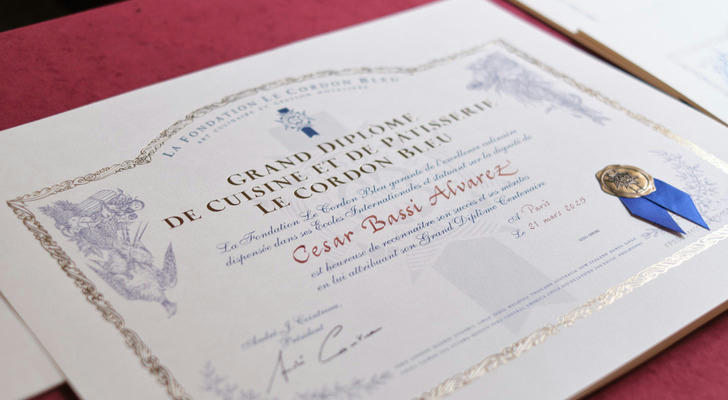 LA FONDATION LE CORDON BLEU
ART CULINAIRE ET GESTION HÔTELIÈRE
GRAND DIPLÔME
DE CUISINE ET DE PÂTISSERIE
LE CORDON BLEU
La Fondation Le Cordon Bleu garante de l'excellence culinaire
dispensée dans ses Ecoles Internationales et statuant sur la dignité de
Cesar Bassi Alvarez
est heureuse de reconnaître son succès et ses mérites
en lui attribuant son Grand Diplôme Centenaire
A Paris
Le 21 mars 2025
André J. Cointreau,
Président